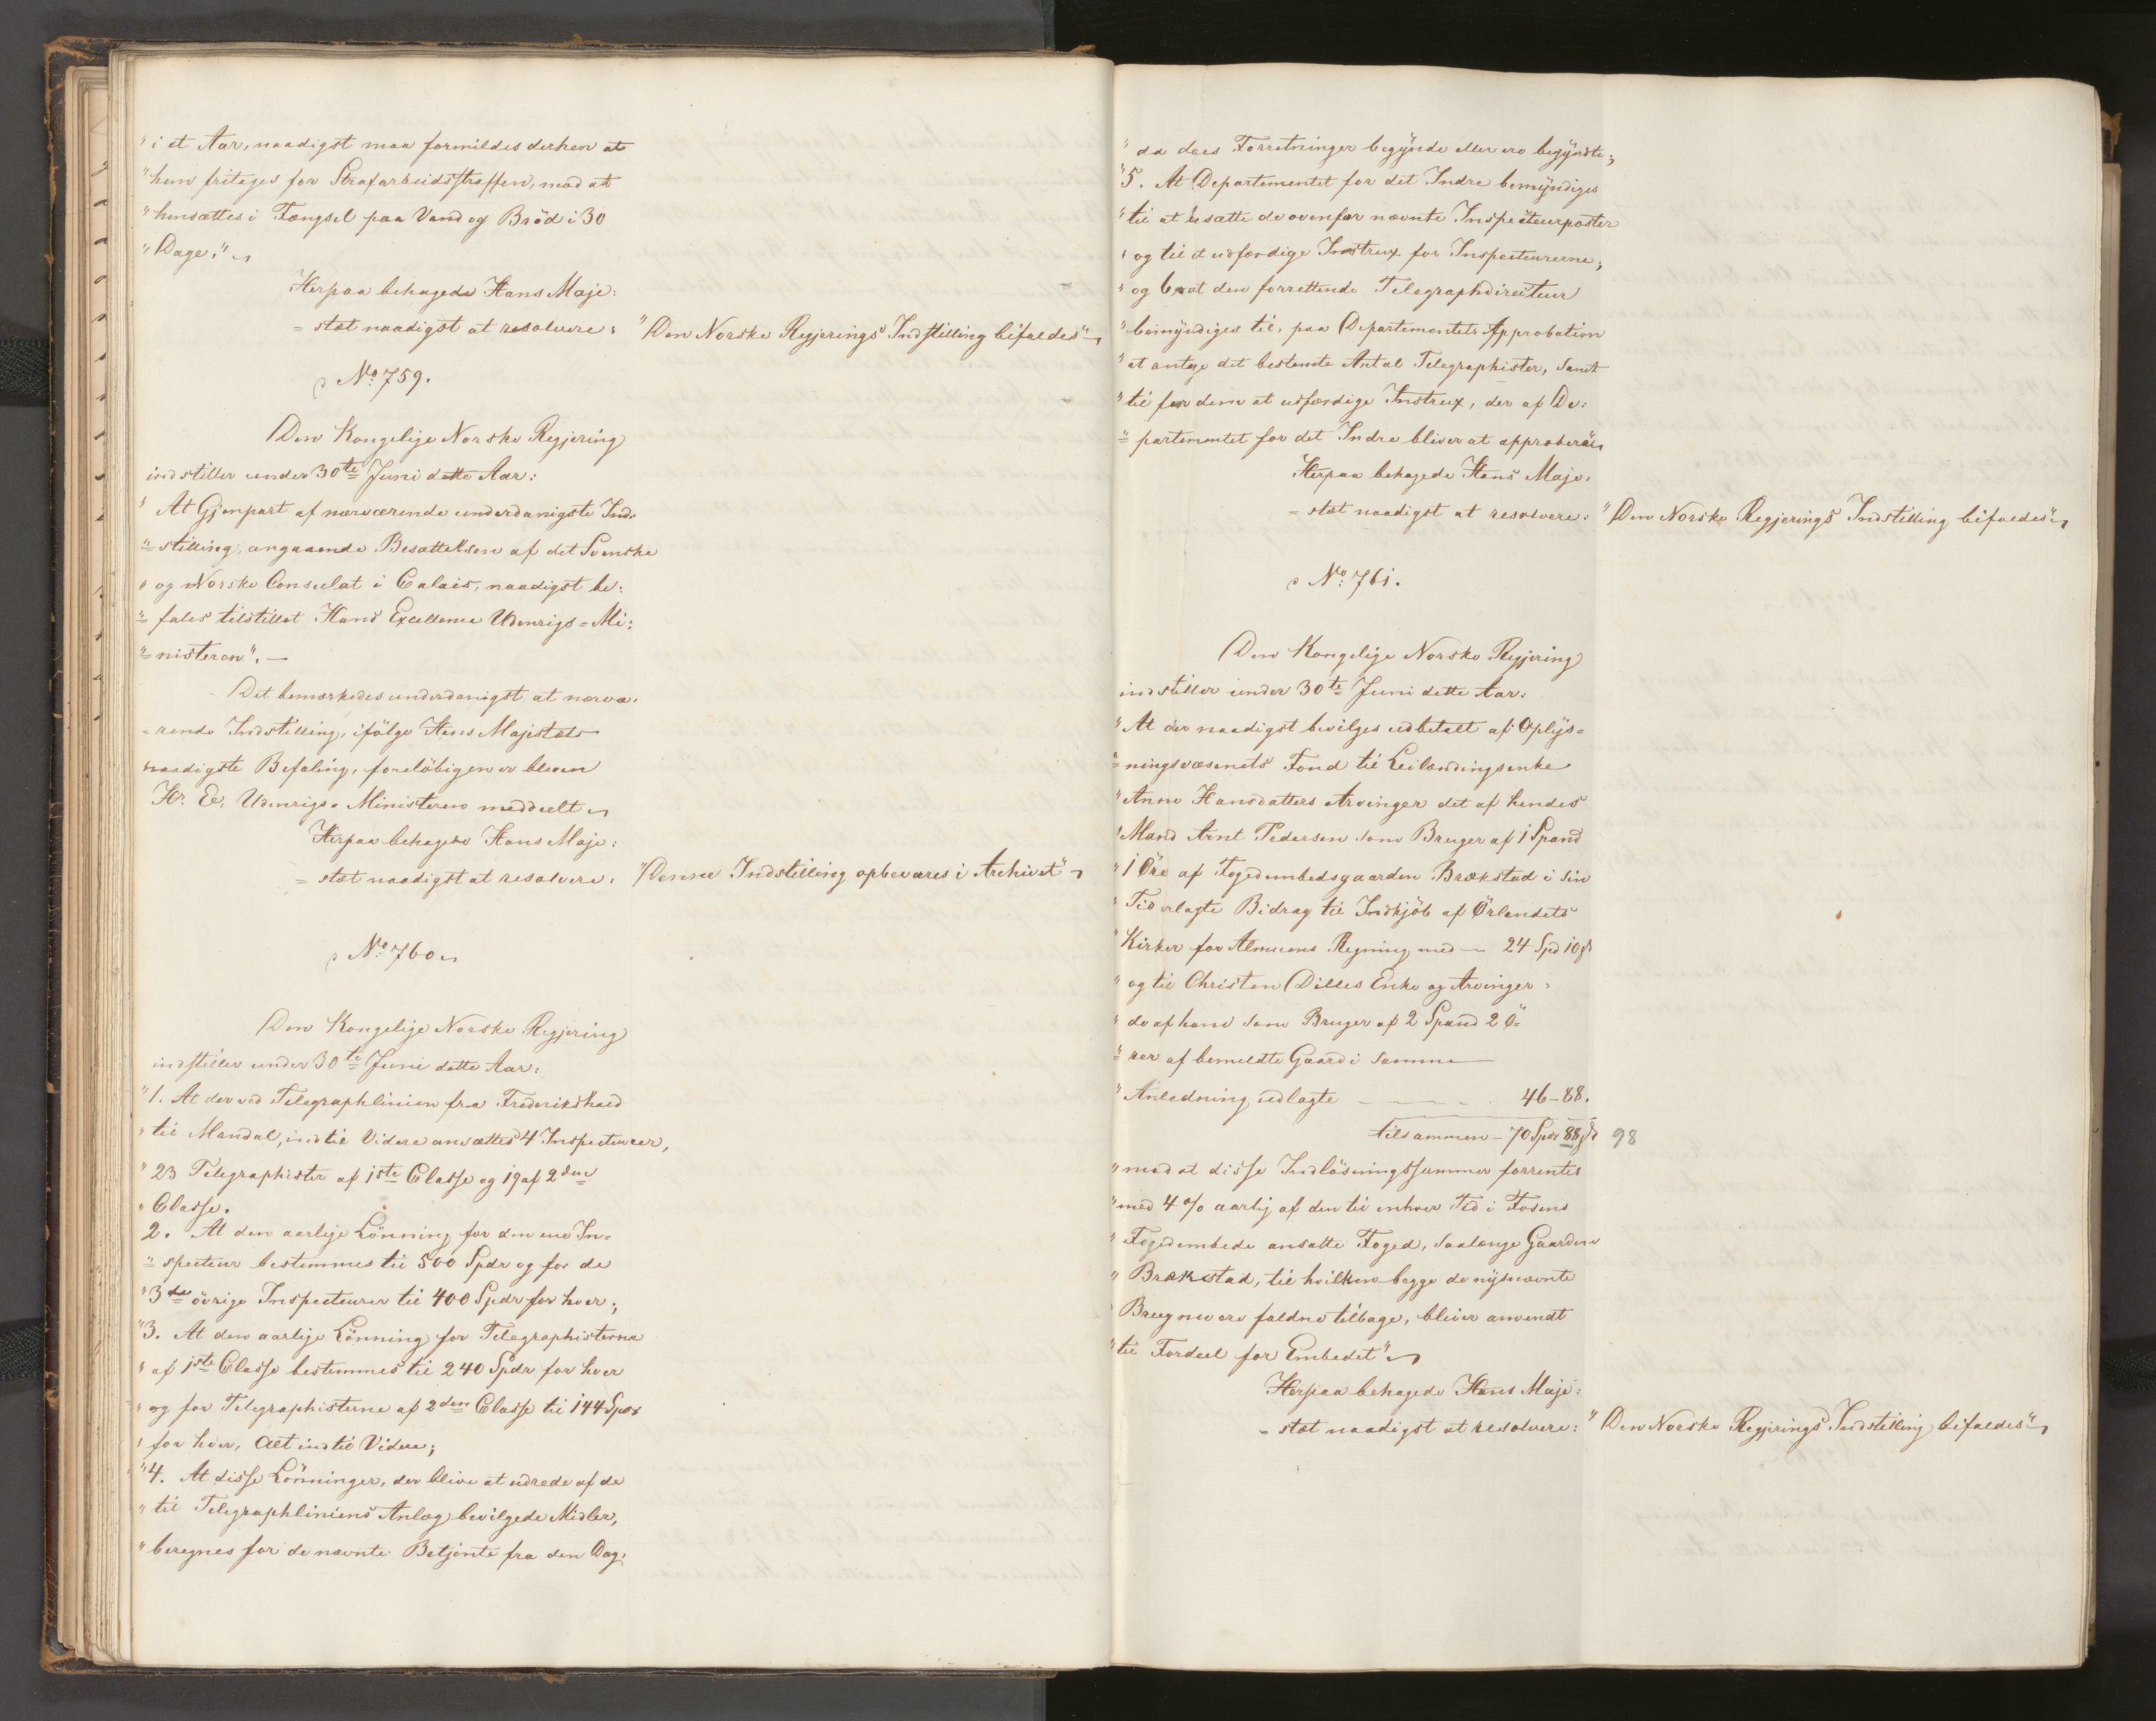 " i et Aar, naadigst maa formildes derhen at
" hun fritages for Strafarbeidsstraffen, mod at
" hensættes i Fængsel paa Vand og Bröd i 30
" Dage."
Herpaa behagede Hans Maje:
= stæt naadigst at resolvere: "Den Norske Regjerings Indstilling bifaldes"
No. 759.
Den Kongelige Norske Regjering
indstiller under 30te Juni dette Aar:
" At Gjenpart af nærværende underdanigste Ind:
"= stilling, angaaende Besættelsen af det Svenske
" og Norske Consulat i Calais, naadigst be:
"= fales tilstillet Hans Excellence Udenrigs=Mi:
"= nisteren". —
Det bemærkedes underdanigst at nærvæ:
= rende Indstilling, ifölge Hans Majestæts
naadigste Befaling, forelöbigen er bleven
Hr. Ex. Udenrigs=Ministeren meddeelt
Herpaa behagede Hans Maje:
= stæt naadigst at resolvere: "Denne Indstilling opbevares i Archivet"
No. 760
Den Kongelige Norske Regjering
indstiller under 30te Juni dette Aar:
"1. At der ved Telegraphlinien fra Frederikshald
" til Mandal, indtil Videre ansættes 4 Inspecteurer,
" 23 Telegraphister af 1ste Classe og 19 af 2den
" Classe.
2. At den aarlige Lönning for den ene In=
"= specteur bestemmes til 500 Spdr og for de
" 3de övrige Inspecteurer til 400 Spdr for hver;
"3. At den aarlige Lönning for Telegraphisterne
" af 1ste Classe bestemmes til 240 Spdr for hver
" og for Telegraphisterne af 2den Classe til 144 Spdr
" for hver, Alt indtil Videre;
"4. At disse Lönninger, der blive at udrede af de
" til Telegraphliniens Anlæg bevilgede Midler,
" beregnes for de nævnte Betjente fra den Dag,
" da deres Forretninger begynde eller ere begyndte;
"5. At Departementet for det Indre bemyndiges
" til at besætte de ovenfor nævnte Inspecteurposter
" og til at udfærdige Instrux for Inspecteurerne;
" og 6. at den forrettende Telegraphdirecteur
" bemyndiges til, paa Departementets Approbation
" at antage det bestemte Antal Telegraphister, samt
" til for dem at udfærdige Instrux, der af De:
"= partementet for det Indre bliver at approbere"
Herpaa behagede Hans Maje:
= stæt naadigst at resolvere: "Den Norske Regjerings Indstilling bifaldes"
No. 761.
Den Kongelige Norske Regjering
indstiller under 30te Juni dette Aar:
" At der naadigst bevilges udbetalt af Oplys=
"= ningsvæsenets Fond til Leilændingsenke
" Anne Hansdatters Arvinger det af hendes
" Mand Arnt Pedersen som Bruger af 1 Spand
" 1 Öre af Fogedembedsgaarden Brækstad i sin
" Tid erlagte Bidrag til Indkjöb af Örlandets
" Kirker for Almuens Regning med — 24 Spd 10 ß
" og til Christen Dilles Enke og Arvinger
" de af ham som Bruger af 2 Spand 2 Ö=
"= rer af bemeldte Gaard i samme
" Anledning udlagte — — — 46 – 88.
tilsammen – 70 Spdr 88 ß 98
" mod at disse Indlösningssummer forrentes
" med 4 % aarlig af den til enhver Tid i Fosens
" Fogedembede ansatte Foged, saalænge Gaarden
" Brækstad, til hvilken begge de nysnævnte
" Brug nu ere faldne tilbage, bliver anvendt
" til Fordeel for Embedet"
Herpaa behagede Hans Maje:
= stæt naadigst at resolvere: "Den Norske Regjerings Indstilling bifaldes"